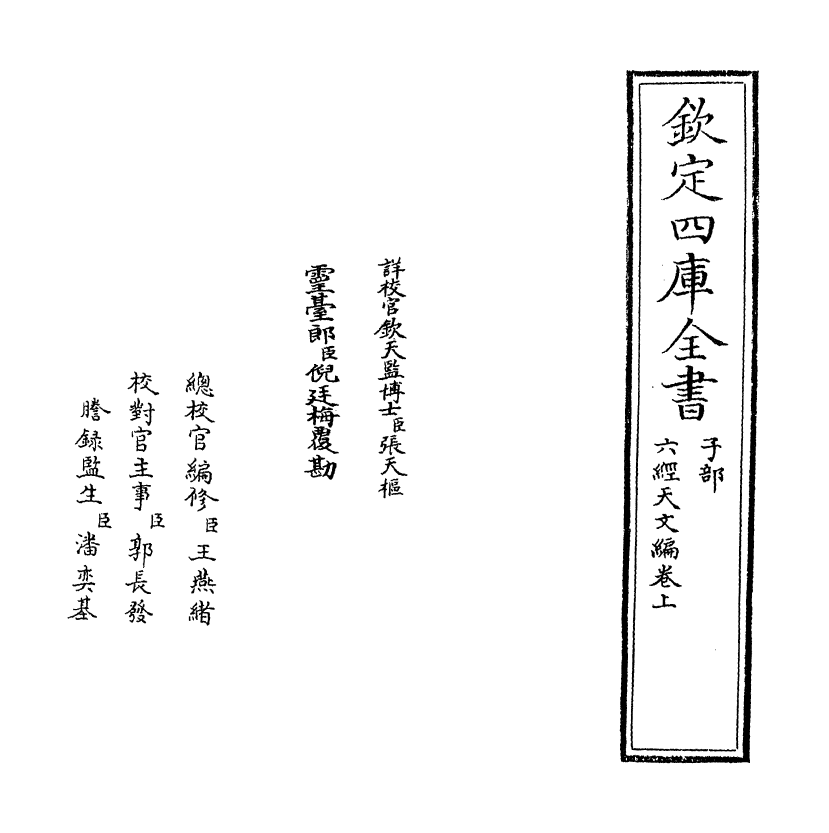 欽定四庫全書
子部
六經天文編卷上
詳校官欽天監博士臣張天樞
靈臺郎臣倪廷梅覆勘
總校官編修臣王燕緒
校對官主事臣郭長發
謄錄監生臣潘奕基